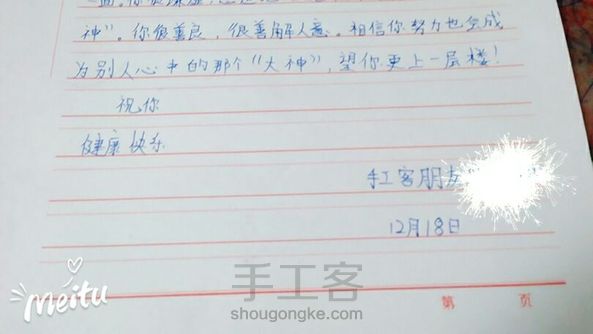 神”。你很善良，很善解人意。相信你努力也会成
为别人心中的那个“大神”，望你更上一层楼！
祝你
健康快乐
手工客朋友
12月18日
第 页
meitu
手工客
shougongke.com